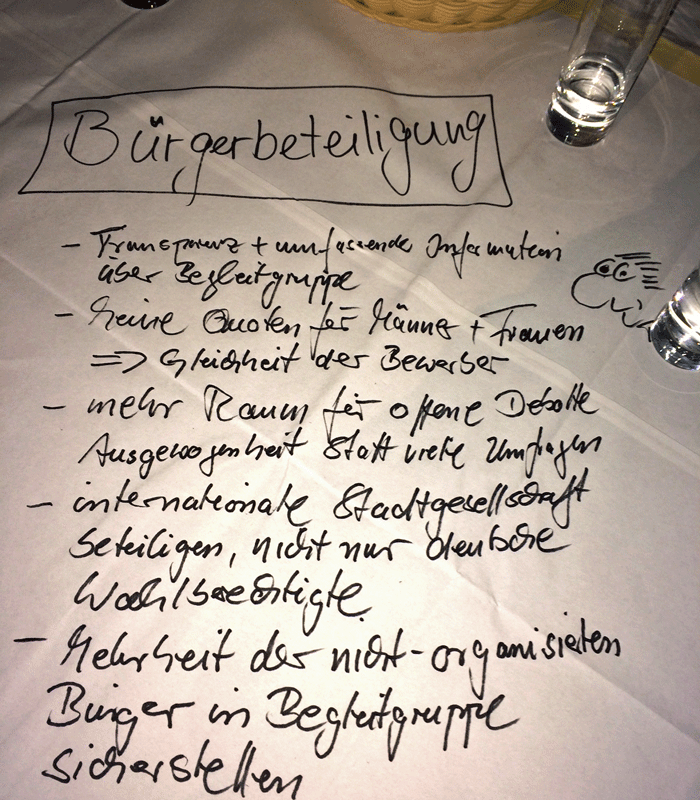 Bürgerbeteiligung
- Transparenz + umfassende Information
über Begleitgruppe
- keine Quoten für Männer + Frauen
=> Gleichheit der Bewerber
- mehr Raum für offene Debatte
Ausgewogenheit statt viele Umfragen
- internationale Stadtgesellschaft
beteiligen, nicht nur deutsche
Wahlberechtigte
- Mehrheit der nicht-organisierten
Bürger in Begleitgruppe
sicherstellen